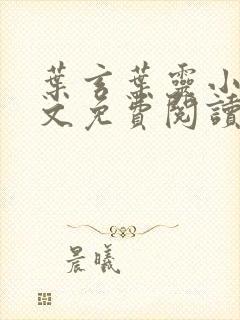 葉言葉靈小
文免費閱讀
晨曦